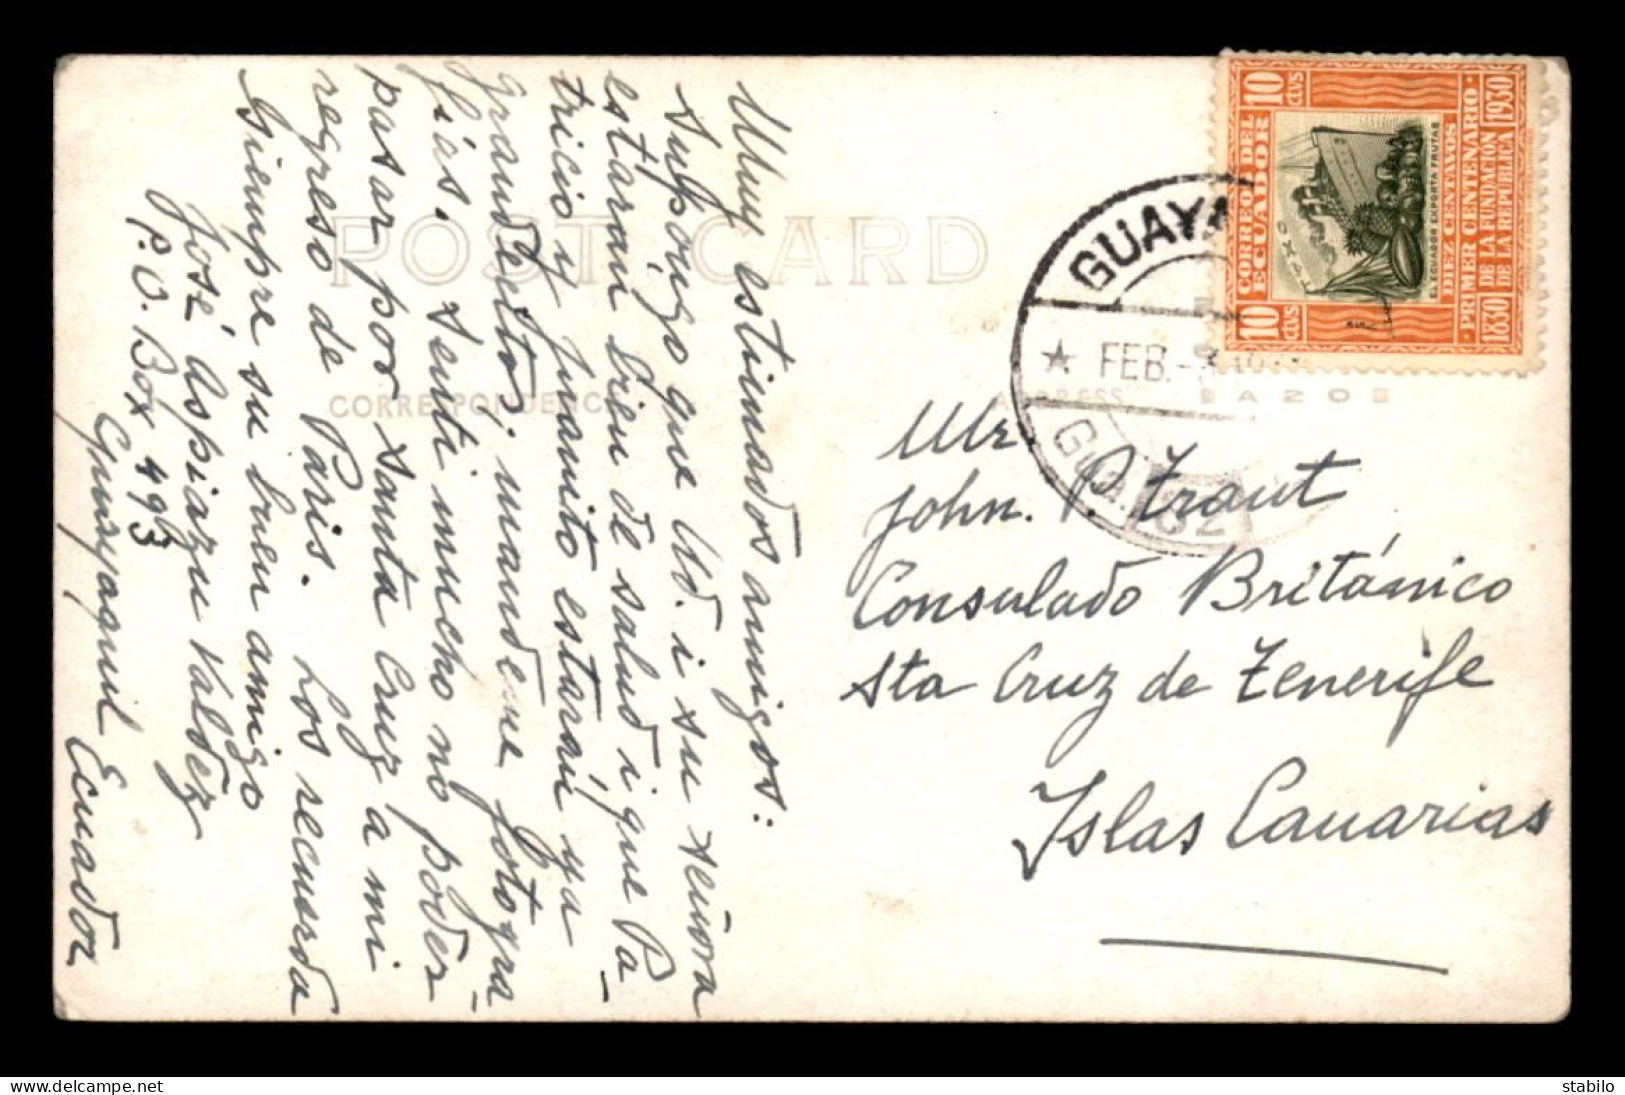 Muy estimados amigos:
Supóngo que Ud. i su señora
estarán bien de salud i que Pa-
tricio y Juanito estarán ya
grandecitos, mandeme fotogra-
fías. Sentí mucho no poder
pasar por Santa Cruz a mi
regreso de Paris. Los recuerda
siempre su buen amigo
José Aspiazu Valdez
P.O. Box 493
Guayaquil Ecuador
POST CARD
CORRESPONDENCE
ADDRESS
GUAYA
★ FEB.-
CORREO DEL
ECUADOR
10 ctvs
10 ctvs
DIEZ CENTAVOS
EL ECUADOR EXPORTA FRUTAS
PRIMER CENTENARIO
1830 DE LA FUNDACION 1930
DE LA REPUBLICA
Mr.
John. P. Traut
Consulado Británico
Sta Cruz de Tenerife
Islas Canarias
stabilo